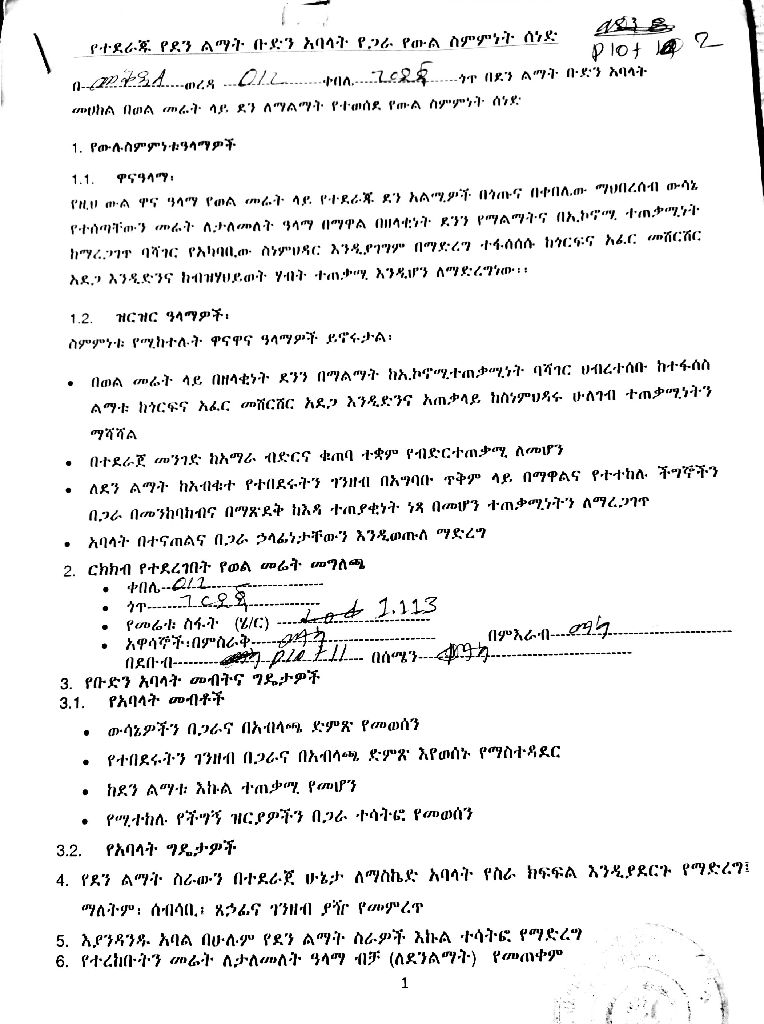 የተደራጁ የደን ልማት ቡድን አባላት የጋራ የውል ስምምነት ሰነድ
Plot 2
በ ወረዳ 012 ቀበሌ ጎጥ በደን ልማት ቡድን አባላት
መሀከል በወል መሬት ላይ ደን ለማልማት የተወሰደ የውል ስምምነት ሰነድ
1. የውሉስምምነቱዓላማዎች
1.1. ዋናዓላማ፡
የዚህ ውል ዋና ዓላማ የወል መሬት ላይ የተደራጁ ደን አልሚዎች በጎጡና በቀበሌው ማህበረሰብ ውሳኔ
የተሰጣቸውን መሬት ለታለመለት ዓላማ በማዋል በዘላቂነት ደንን የማልማትና በኢኮኖሚ ተጠቃሚነት
ከማረጋገጥ ባሻገር የአካባቢው ስነምህዳር እንዲያገግም በማድረግ ተፋሰሱ ከጎርፍና አፈር መሸርሸር
አደጋ እንዲድንና ከብዝሃህይወት ሃብት ተጠቃሚ እንዲሆን ለማድረግነው፡፡
1.2. ዝርዝር ዓላማዎች፡
ስምምነቱ የሚከተሉት ዋናዋና ዓላማዎች ይኖሩታል፡
• በወል መሬት ላይ በዘላቂነት ደንን በማልማት ከኢኮኖሚተጠቃሚነት ባሻገር ህብረተሰቡ ከተፋሰስ
ልማቱ ከጎርፍና አፈር መሸርሸር አደጋ እንዲድንና አጠቃላይ ከስነምህዳሩ ሁለገብ ተጠቃሚነትን
ማሻሻል
• በተደራጀ መንገድ ከአማራ ብድርና ቁጠባ ተቋም የብድርተጠቃሚ ለመሆን
• ለደን ልማት ከአብቁተ የተበደሩትን ገንዘብ በአግባቡ ጥቅም ላይ በማዋልና የተተከሉ ችግኞችን
በጋራ በመንከባከብና በማጽደቅ ከእዳ ተጠያቂነት ነጻ በመሆን ተጠቃሚነትን ለማረጋገጥ
• አባላት በተናጠልና በጋራ ኃላፊነታቸውን እንዲወጡ ማድረግ
2. ርክክብ የተደረገበት የወል መሬት መግለጫ
• ቀበሌ 012
• ጎጥ
• የመሬቱ ስፋት (ሄ/ር) 1.113
• አዋሳኞች፡በምስራቅ በምእራብ
በደቡብ Plot 11 በሰሜን
3. የቡድን አባላት መብትና ግዴታዎች
3.1. የአባላት መብቶች
• ውሳኔዎችን በጋራና በአብላጫ ድምጽ የመወሰን
• የተበደሩትን ገንዘብ በጋራና በአብላጫ ድምጽ እየወሰኑ የማስተዳደር
• ከደን ልማቱ እኩል ተጠቃሚ የመሆን
• የሚተከሉ የችግኝ ዝርያዎችን በጋራ ተሳትፎ የመወሰን
3.2. የአባላት ግዴታዎች
4. የደን ልማት ስራውን በተደራጀ ሁኔታ ለማስኬድ አባላት የስራ ክፍፍል እንዲያደርጉ የማድረግ፤
ማለትም፡ ሰብሳቢ፡ ጸኃፊና ገንዘብ ያዥ የመምረጥ
5. እያንዳንዱ አባል በሁሉም የደን ልማት ስራዎች እኩል ተሳትፎ የማድረግ
6. የተረከቡትን መሬት ለታለመለት ዓላማ ብቻ (ለደንልማት) የመጠቀም
1